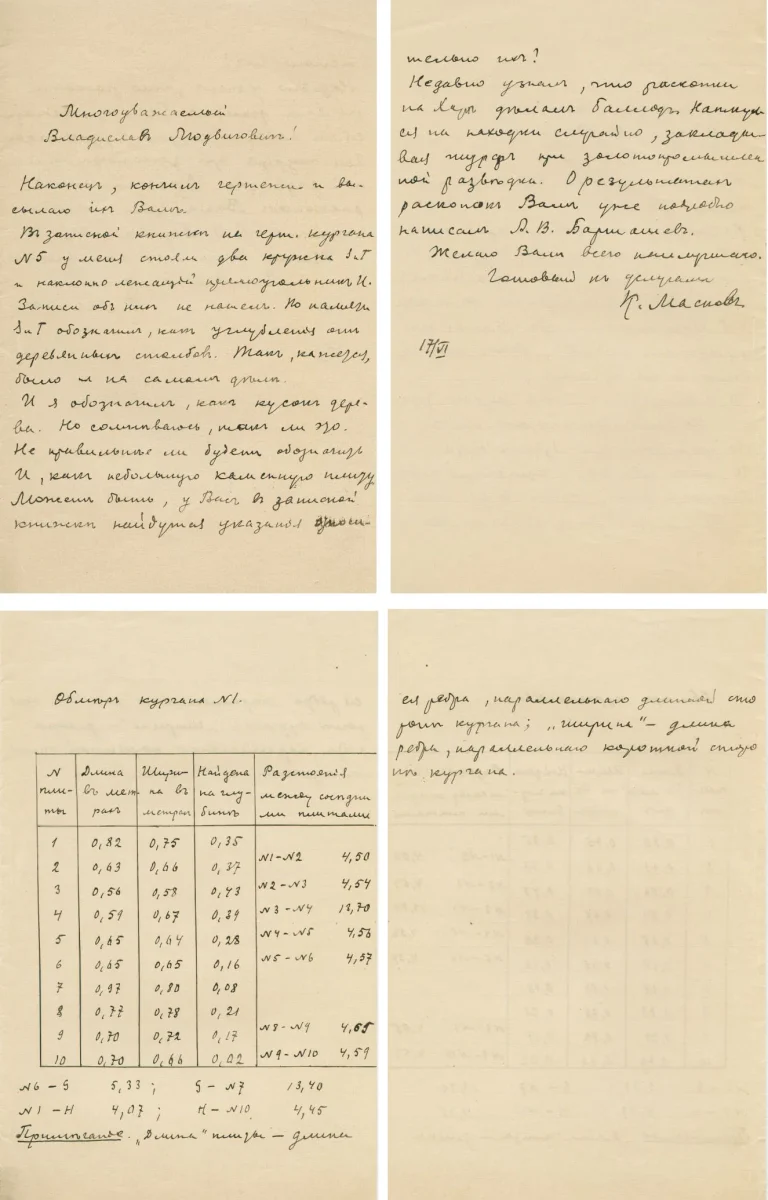 Многоуважаемый
Владиславъ Людвиговичъ!
Наконецъ, кончилъ чертежи и вы-
сылаю ихъ Вамъ.
Въ записной книжкѣ на черт. кургана
N5 у меня стоятъ два кружка S и T
и наклонно лежащій прямоугольникъ И.
Записи объ нихъ не нашелъ. По памяти
S и T обозначилъ, какъ углубленія отъ
деревянныхъ столбовъ. Такъ, кажется,
было и на самомъ дѣлѣ.
И я обозначилъ, какъ кусокъ дере-
ва. Но сомнѣваюсь, такъ ли это.
Не правильнѣе ли будетъ обозначить
И, какъ небольшую каменную плиту
Можетъ быть, у Васъ въ записной
книжкѣ найдутся указанія относи-
тельно ихъ?
Недавно узналъ, что раскопки
на Хара дѣлалъ Баллодъ. Наткнул-
ся на находки случайно, заклады-
вая шурфъ при золотопромышлен-
ной развѣдкѣ. О результатахъ
раскопокъ Вамъ уже подробно
написалъ А. В.
Желаю Вамъ всего наилучшаго.
Готовый къ услугамъ
К. Масковъ
17/VI
Обмѣръ кургана N1.
N пли- ты | Длина въ мет- рахъ | Шири- на въ метрахъ | Найдена на глу- бинѣ | Разстоянія между сосѣдни- ми плитами
1 0,82 0,75 0,35
N1-N2 4,50
2 0,63 0,66 0,37
N2-N3 4,54
3 0,56 0,58 0,43
N3-N4 12,70
4 0,59 0,67 0,39
N4-N5 4,56
5 0,65 0,64 0,28
N5-N6 4,57
6 0,65 0,65 0,16
7 0,97 0,80 0,08
8 0,77 0,78 0,21
N8-N9 4,65
9 0,70 0,72 0,17
N9-N10 4,59
10 0,70 0,66 0,02
N6 - G 5,33; G - N7 13,40
N1 - H 4,07; H - N10 4,45
Примѣчаніе. „Длина" плиты — длина
ея ребра, параллельнаго длинной сто
роны кургана; „ширина" — длина
ребра, параллельнаго короткой сторо
нѣ кургана.